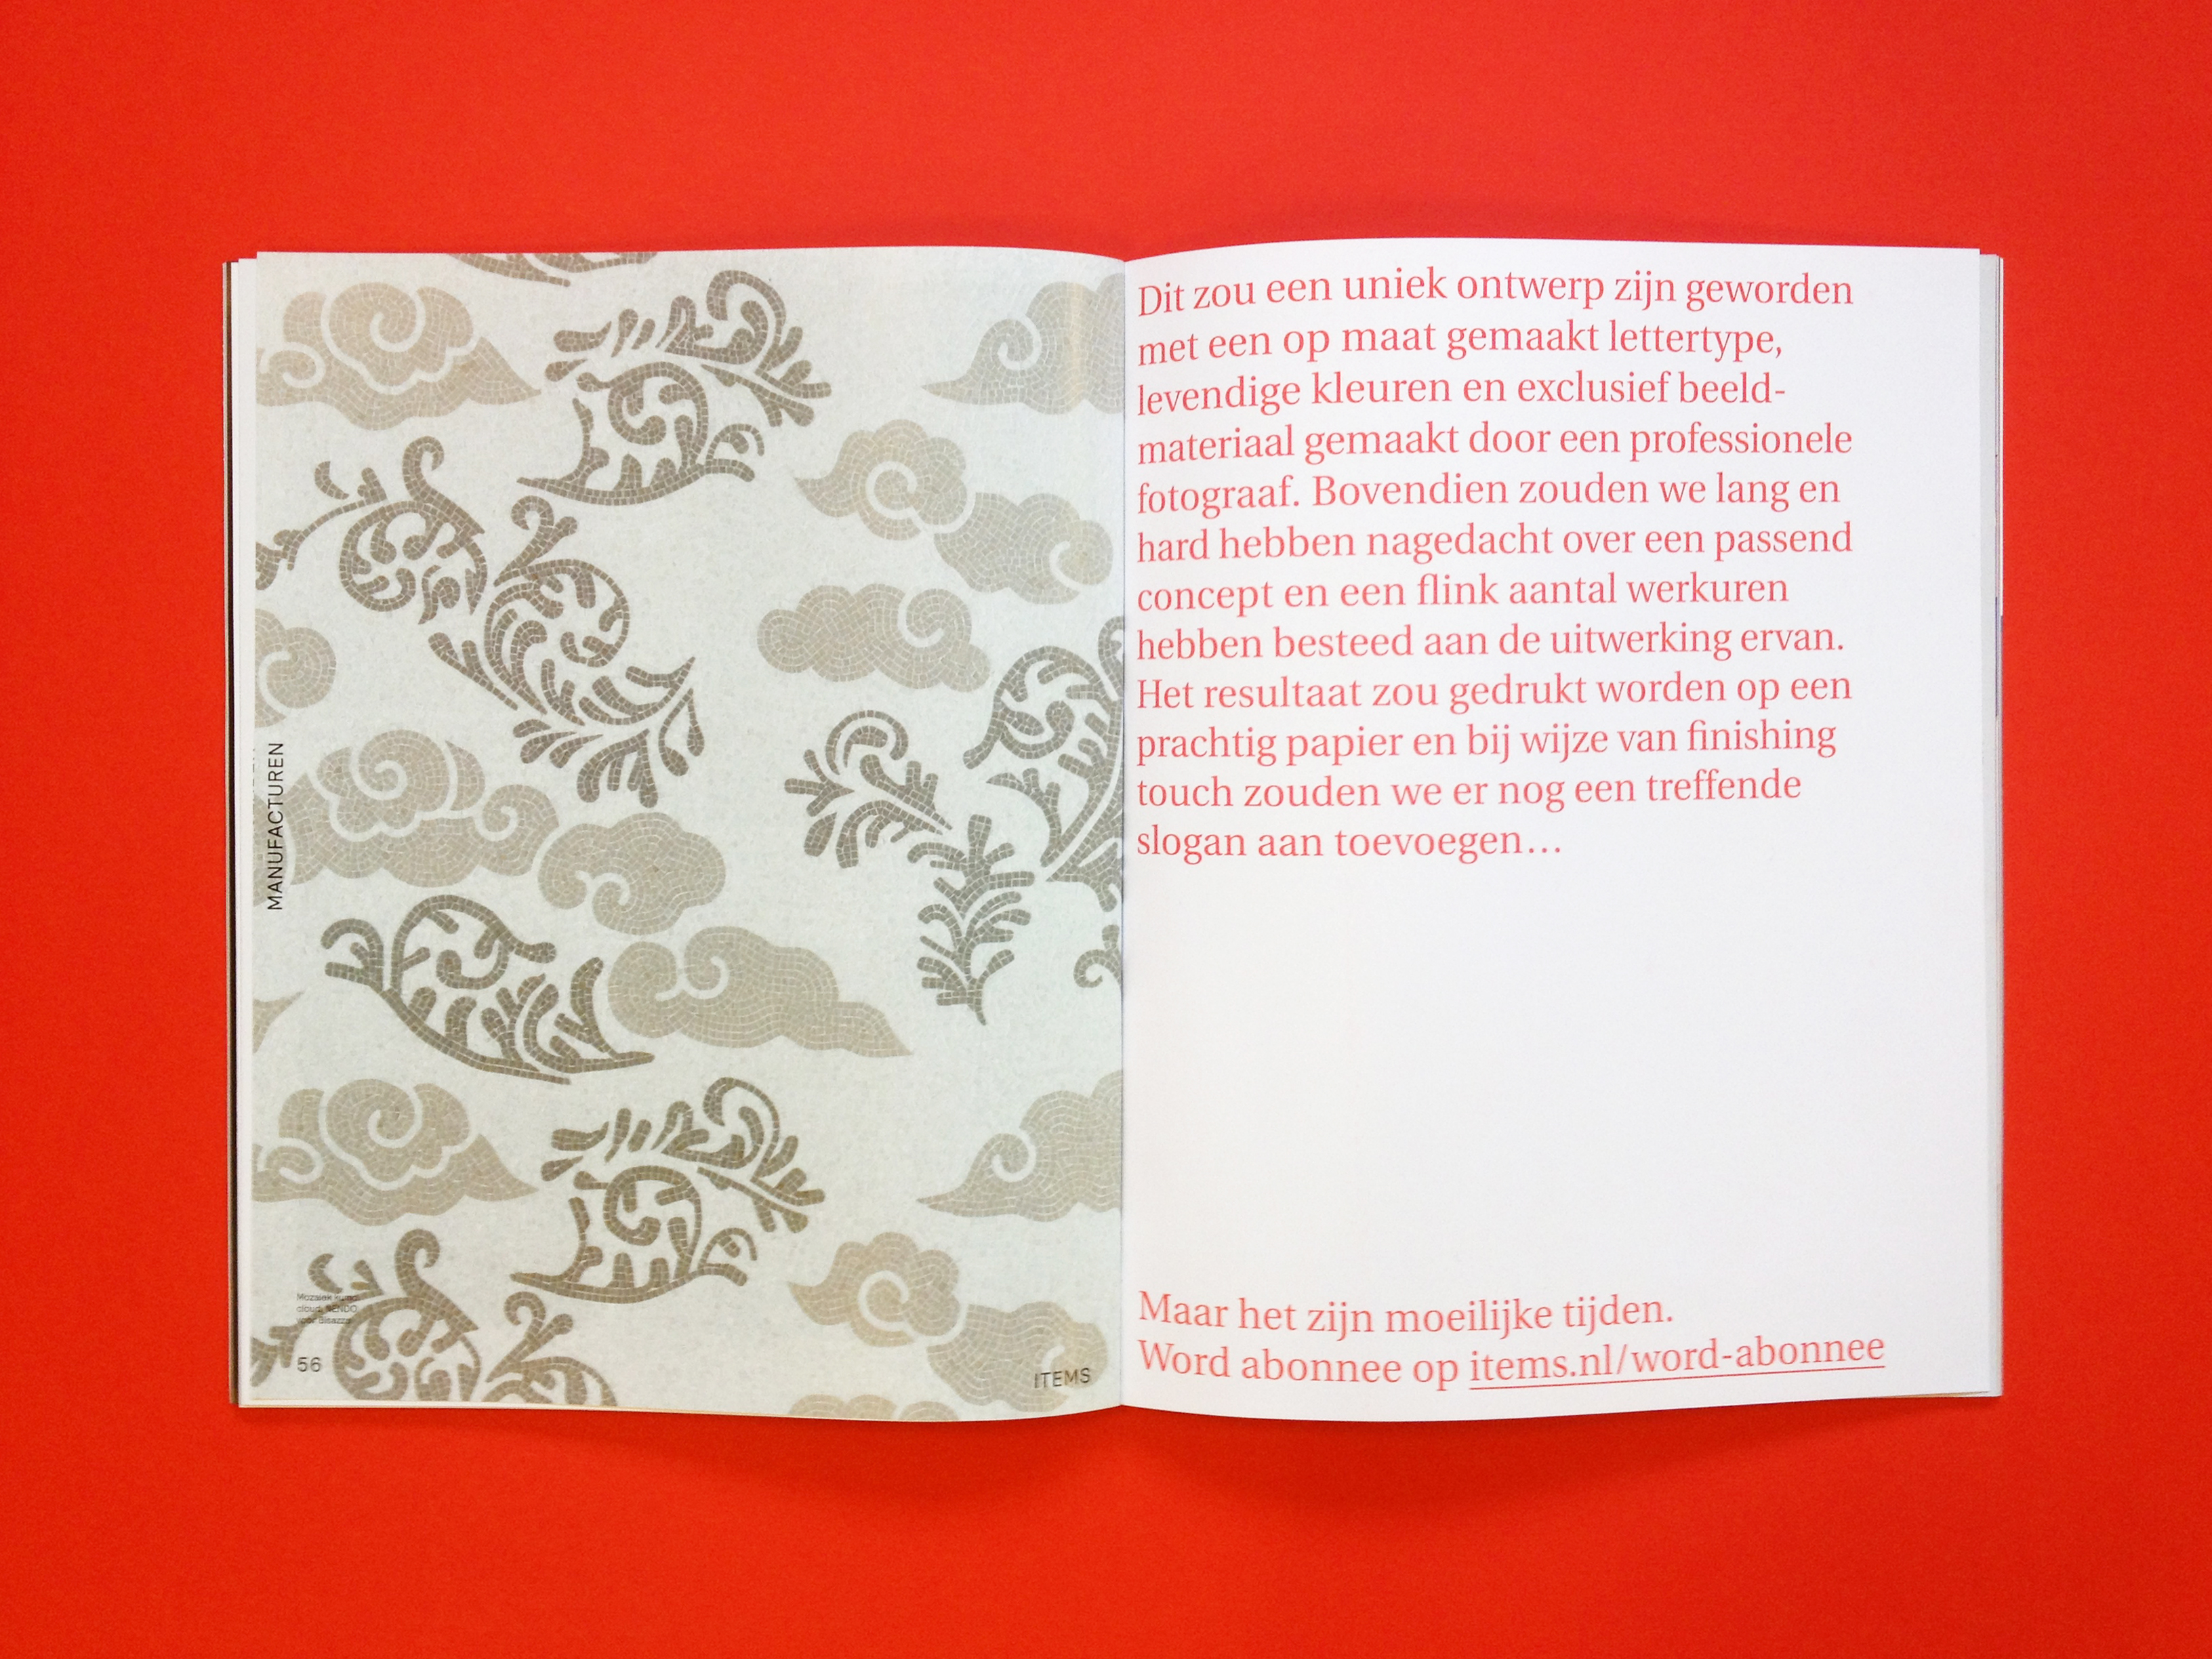 MANUFACTUREN
Mozaiek
cloud, NENDO
voor Bisazza
56
ITEMS
Dit zou een uniek ontwerp zijn geworden
met een op maat gemaakt lettertype,
levendige kleuren en exclusief beeld-
materiaal gemaakt door een professionele
fotograaf. Bovendien zouden we lang en
hard hebben nagedacht over een passend
concept en een flink aantal werkuren
hebben besteed aan de uitwerking ervan.
Het resultaat zou gedrukt worden op een
prachtig papier en bij wijze van finishing
touch zouden we er nog een treffende
slogan aan toevoegen…
Maar het zijn moeilijke tijden.
Word abonnee op items.nl/word-abonnee